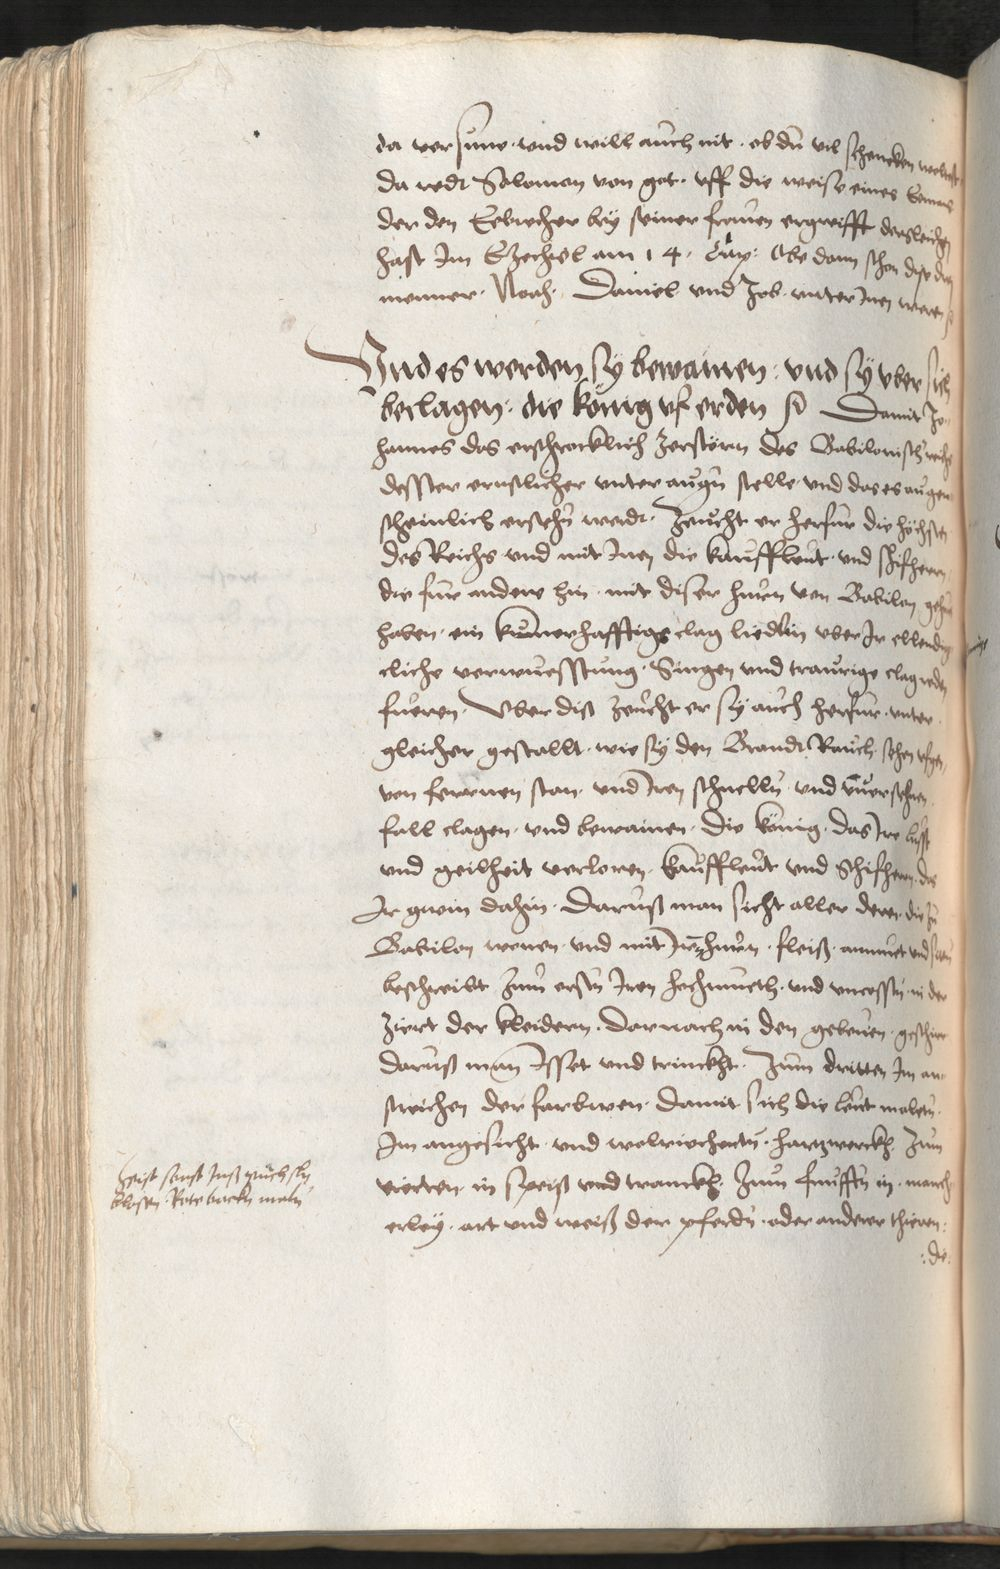 da versune. und will auch nit. ob du vil schencken woltest.
da redt Solomon von got. uff die weise eines Emans
der den Eebrecher bey seiner frauen ergreifft dergleichen
hast Im Ezechiel am 14. Cap: Obe dann schon dise drey
menner. Noah. Daniel und Job. unter Inen weren
Und es werden sy bewainen: und sy uber sich
beclagen: die könig uf erden Damit Jo-
hannes das erschrocklich zerstörn des Babilonisch reichs
desster ernstlicher unter augen stelle und das es augen
scheinlich ersehen werdt. Zeucht er herfur die höchsten
des Reichs und mit Inen die kauffleut. und schifherrn.
die fur andere hin. mit diser hurn von Babilon gehurt
haben. ein kumerhafftigs clag liedlin uber Ir ellendig
cliche verwuesstung. Singen und traurige clag reden
fueren. Uber diß zeucht er sy auch herfur. unter
gleicher gestallt. wie sy den Brandt Rauch. sehen ufgen
von ferrnen stan. und Iren schnellen und unversehnen
fall clagen. und bewainen. die könig. das Ire lust
und geilheit verloren. kauffleut und Schifherrn. das
Ir gwin dahin. Daruß man sicht aller deren. die zu
Babilon weren. und mit Iren hurn. fleiß. anmuet und
beschreibt. Zum ersten Iren hochmueth. und uncossten. in der
Ziert der kleidern. Darnach in den gebeuen. geschirr
daruß man Isset und trinckht. Zum dritten Im an-
streichen der farbwen. damit sich die leut malen.
Im angesicht. und wolriechenten. hartzwerckh. Zum
vierten. in speiß und tranckh. Zum funfften in. manch
erley. art und weiß der pferden. oder anderer thieren:
:die
heist sonst Inß
blasen Rote backen malen